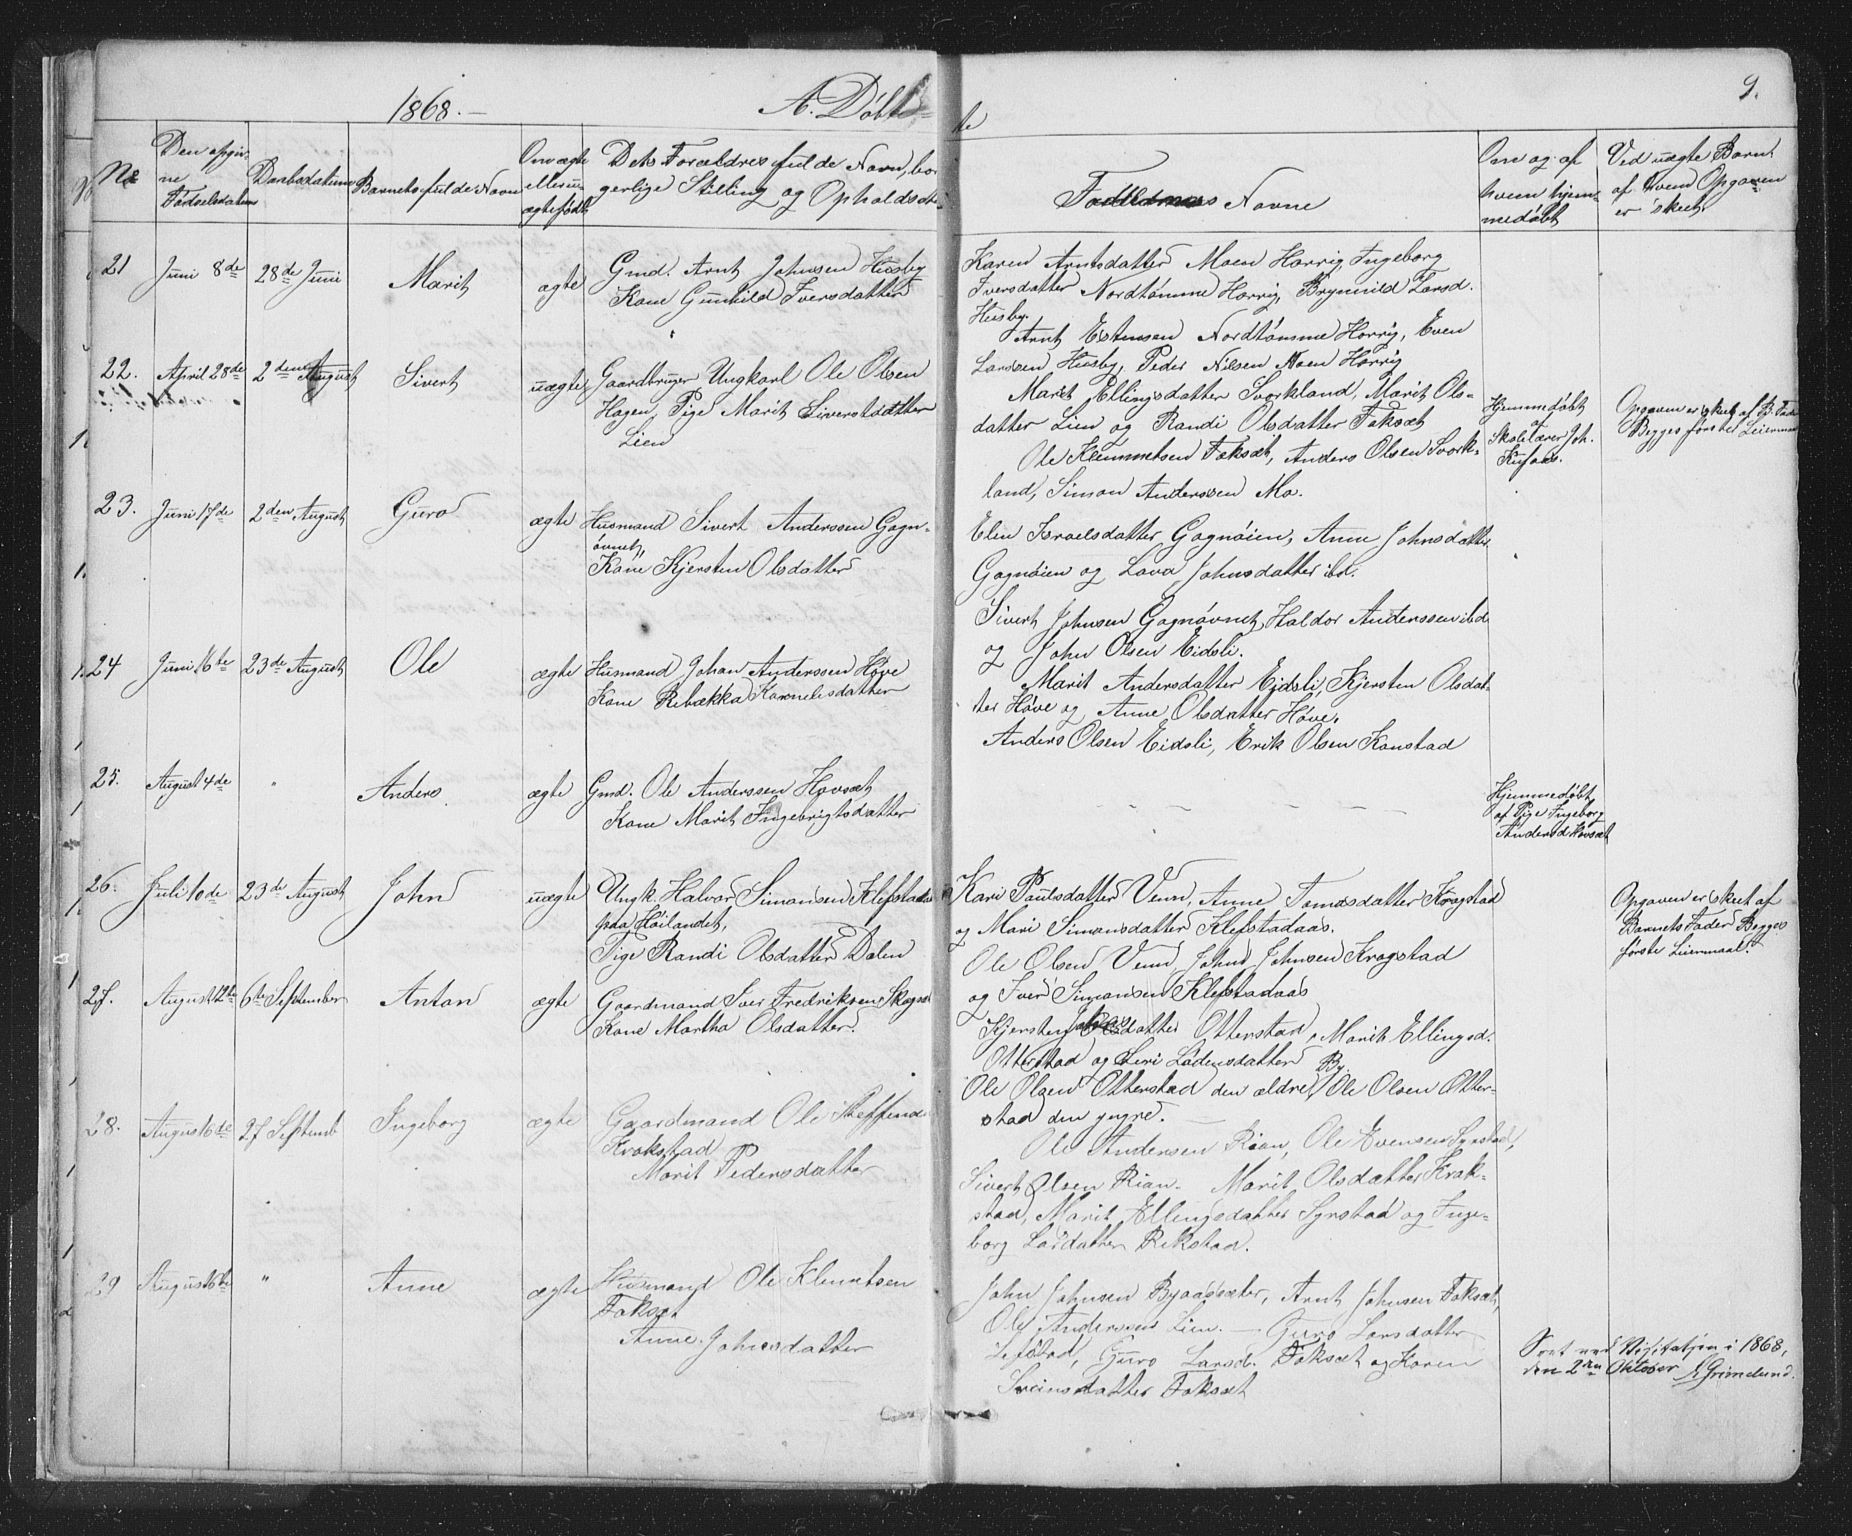 1868. A. Døbte
9.
No Den opgivne Fødselsdatum Daabsdatum Barnets fulde Navn Om ægte eller uægtefødt Dets Forældres fulde Navn, borgerlige Stilling og Opholdsst. Faddernes Navne Om og af hvem hjemmedøbt Ved uægte Barn: af hvem Opgaven er skeet.
21 Juni 8de 28de Juni Marit ægte Gmd. Arnt Johnsen Husby
Kone Gunhild Iversdatter
Karen Arntsdatter Moen Horrig, Ingeborg
Iversdatter Nordtømme Horrig, Brynnild Larsd.
Husby.
Arnt Estensen Nordtømme Horrig, Even
Larssen Husby, Peder Nilsen Moen Horrig
22. April 28de 2den August Sivert uægte Gaardbruger Ungkarl Ole Olsen
Hagen, Pige Marit Sivertsdatter
Lien
Marit Ellingsdatter Svorkland, Marit Ols-
datter Lien og Randi Olsdatter Foksæt
Ole Klemmetsen Foksæt, Anders Olsen Svork-
land, Simon Anderssen Mo.
Hjemmedøbt
af
Skolelærer Joh.
Opgaven er skeet af B. Fader
Begges første Leiermaal
23. Juni 17de 2den August Guro ægte Husmand Sivert Anderssen Gagn-
øvnet,
Kone Kjersten Olsdatter
Elen Israelsdatter Gagnøien, Anne Johnsdatter
Gagnøien og Lava Johnsdatter ibd.
Sivert Johnsen Gagnøvnet, Haldor Anderssen ibd
og John Olsen Eidsli.
24 Juni 16te 23de August Ole ægte Husmand Johan Anderssen Høve
Kone Rebækka Kornelisdatter
Marit Andersdatter Eidsli, Kjersten Olsdat-
ter Høve og Anne Olsdatter Høve.
Anders Olsen Eidsli, Erik Olsen Konstad
25. August 4de " Anders ægte Gmd. Ole Anderssen Hovsæt
Kone Marit Ingebrigtsdatter
Hjemmedøbt
af Pige Ingeborg
Andersd. Hovsæt
26. Juli 10de 23de August John uægte Ungk. Halvor Simonsen Klefstadaas
paa Høilandet,
Pige Randi Olsdatter Dalen
Kari Paulsdatter Venn, Anne Tomasdatter Kragstad
og Mari Simonsdatter Klefstadaas.
Ole Olsen Venn, John Johnsen Kragstad
og Iver Simonsen Klefstadaas
Opgaven er skeet af
Barnets Fader. Begges
første Leiermaal.
27. August 12te 6te September Anton ægte Gaardmand Iver Fredriksen Skogn
Kone Martha Olsdatter.
Kjersten Johnsdatter Otterstad, Marit Ellingsd.
Otterstad og Siri Lodensdatter By
Ole Olsen Otterstad den ældre, Ole Olsen Otter-
stad den yngre.
28. August 6te 27 Septemb Ingeborg ægte Gaardmand Ole Steffens
Krokstad
Marit Pedersdatter
Ole Andersen Rian, Ole Evensen Syrstad,
Sivert Olsen Rian. Marit Olsdatter Krok-
stad, Marit Ellingsdatter Syrstad og Inge-
borg Larsdatter Rekstad.
29 August " Anne ægte Husmand Ole Klemetsen
Foksæt
Anne Johnsdatter
John Johnsen Byaassæter, Arnt Johnsen Foksæt,
Ole Anderssen Lien. — Guro Larsdatter
Lefstad, Guro Larsd. Foksæt og Karen
Sveinsdatter Foksæt
Seet ved Visitatsen i 1868,
den 2den Oktober Grimelund.